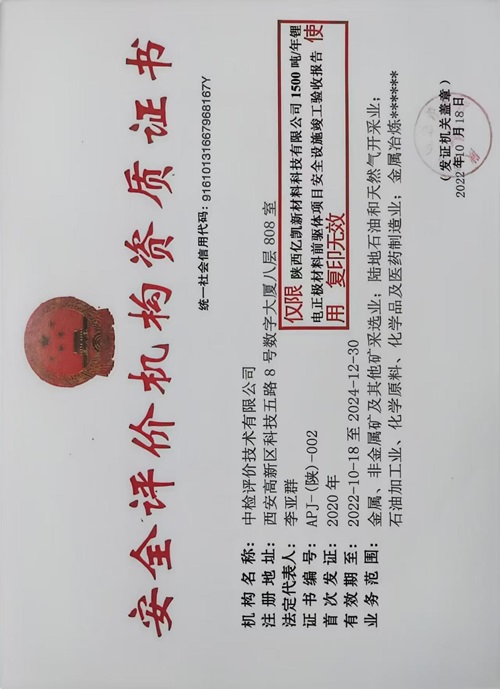 安全评价机构资质证书
统一社会信用代码：91610131667968167Y
机构名称：中检评价技术有限公司
注册地址：西安高新区科技五路8号数字大厦八层808室
法定代表人：李亚群
证书编号：APJ-(陕)-002
首次发证：2020年
有效期至：2022-10-18 至 2024-12-30
业务范围：金属、非金属矿及其他矿采选业；陆地石油和天然气开采业；
石油加工业、化学原料、化学品及医药制造业；金属冶炼******
仅限 陕西亿凯新材料科技有限公司1500吨/年锂
电正极材料前驱体项目安全设施竣工验收报告 使
用 复印无效
（发证机关盖章）
2022年10月18日